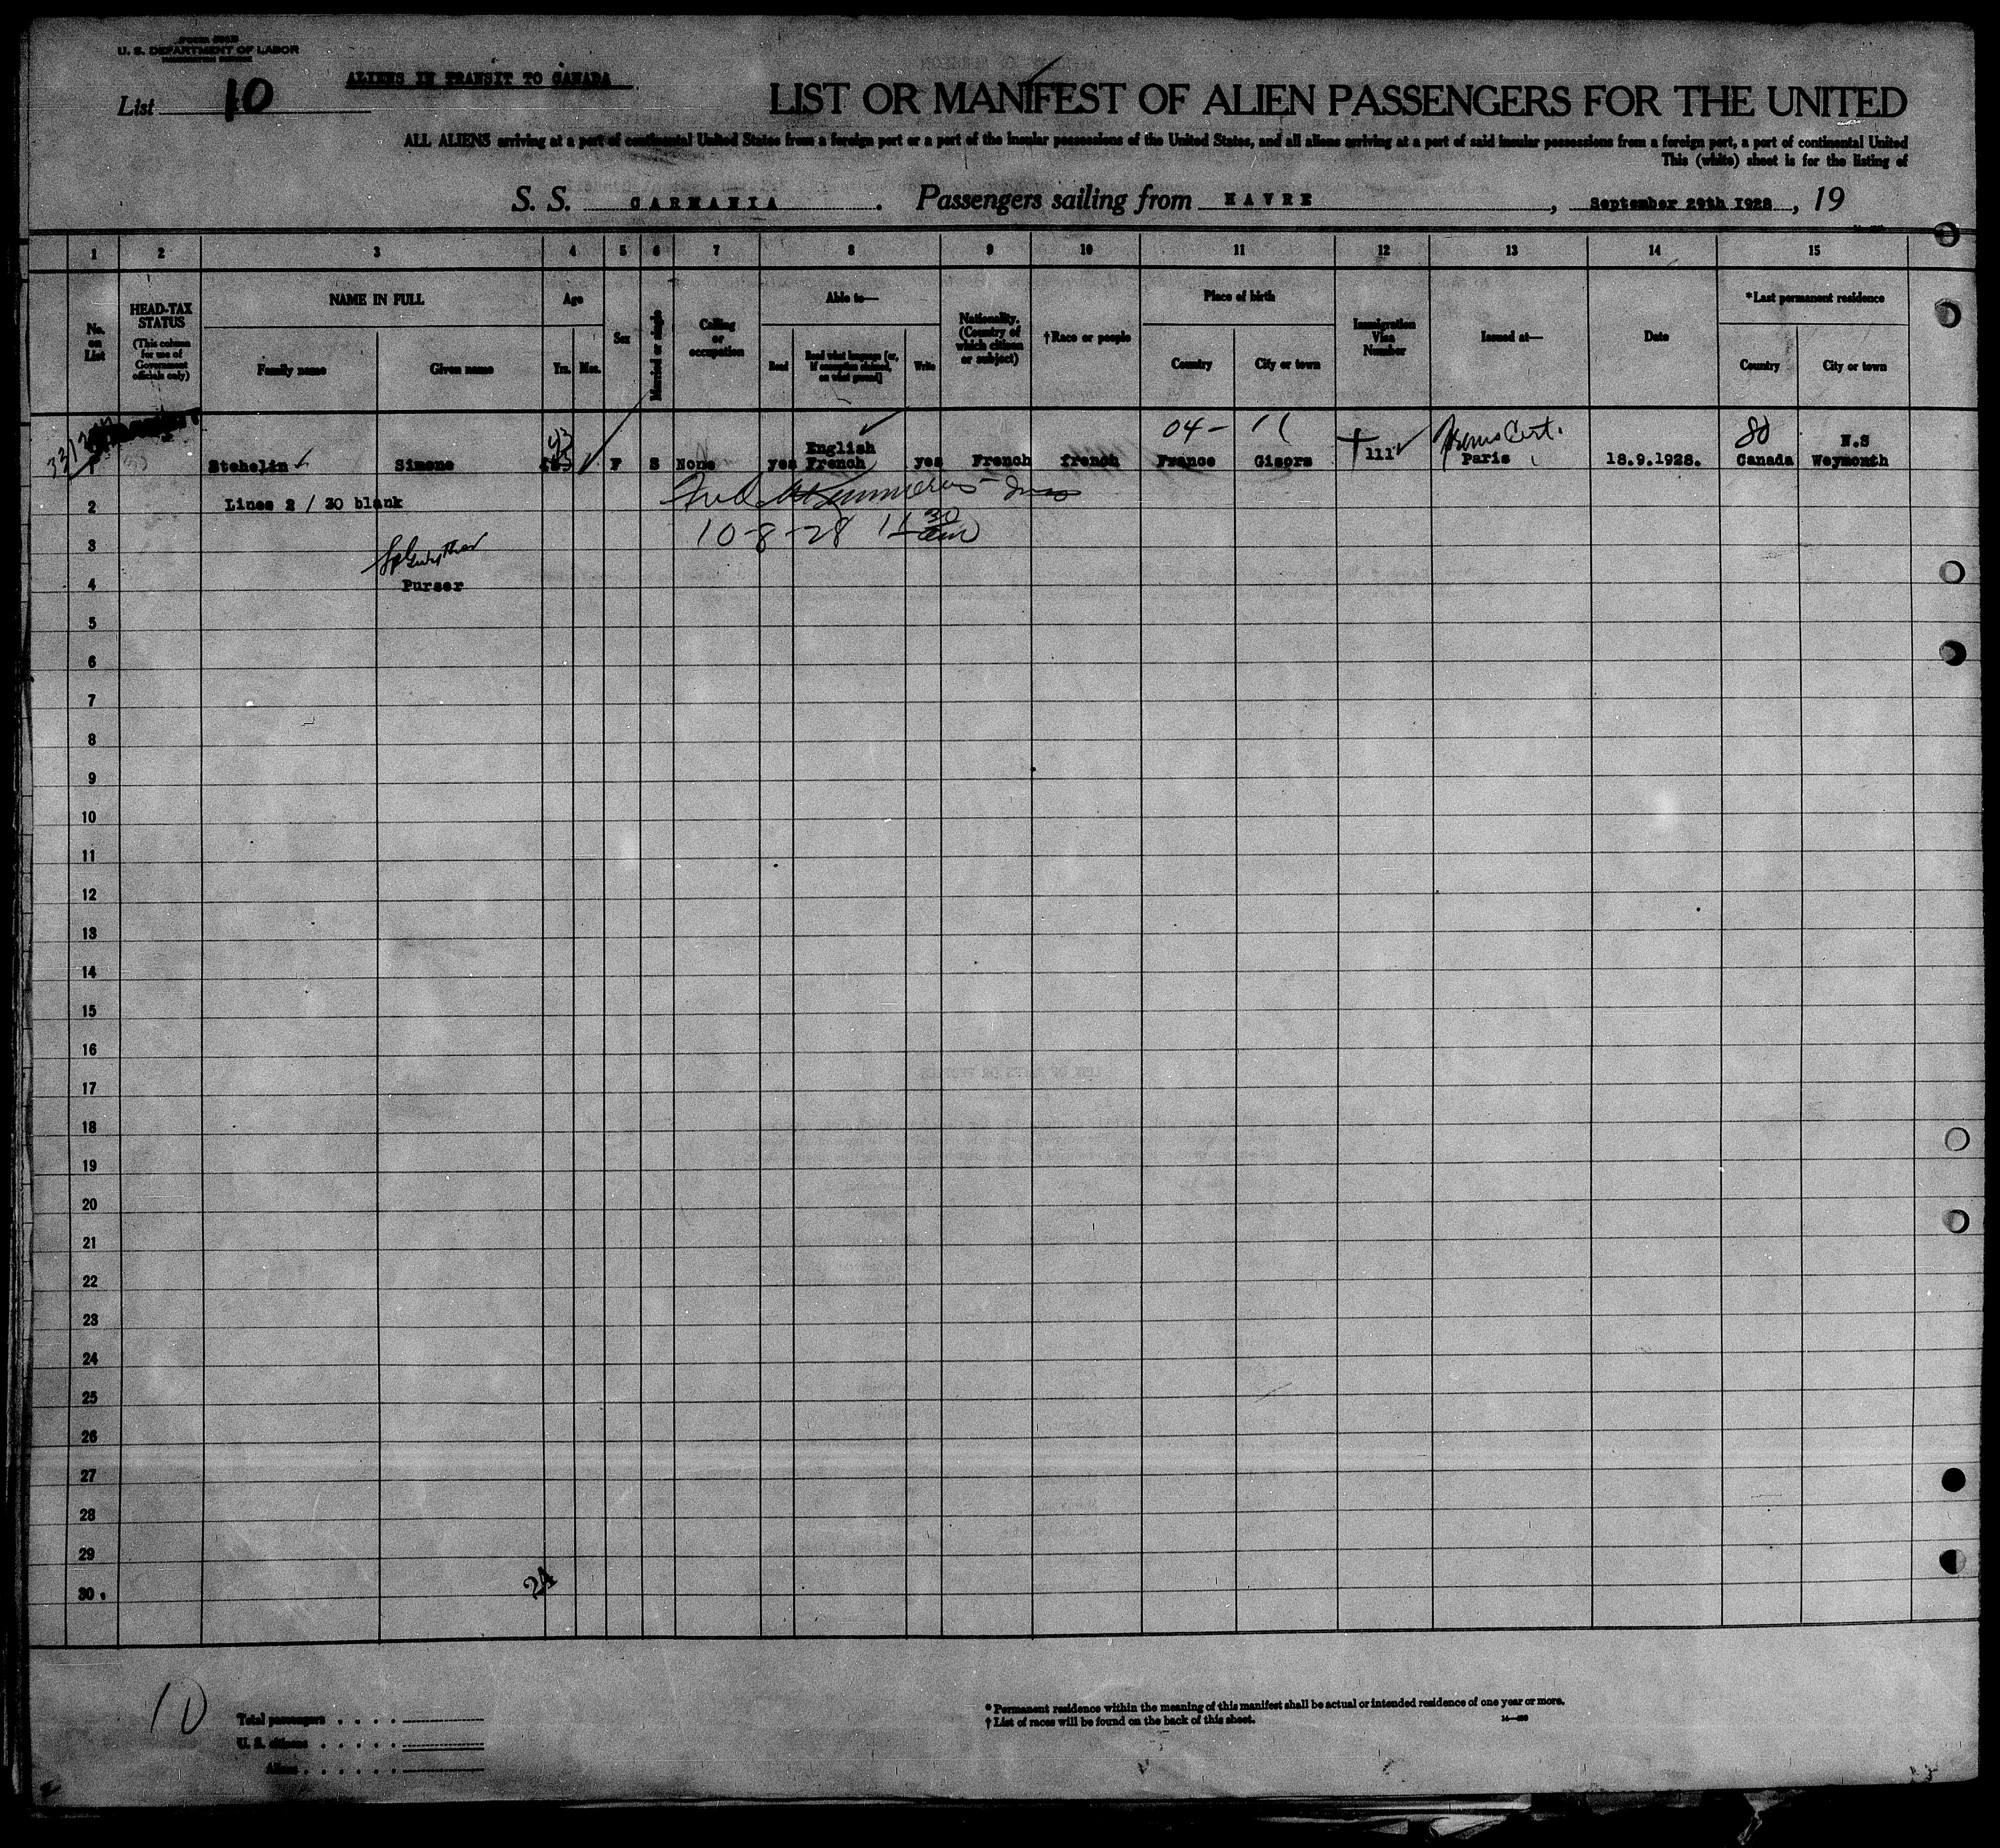 U. S. DEPARTMENT OF LABOR
ALIENS IN TRANSIT TO CANADA
List 10
LIST OR MANIFEST OF ALIEN PASSENGERS FOR THE UNITED
ALL ALIENS arriving at a port of continental United States from a foreign port or a port of the insular possessions of the United States, and all aliens arriving at a port of said insular possessions from a foreign port, a port of continental United
This (white) sheet is for the listing of
S. S. CARMANIA . Passengers sailing from HAVRE , September 29th 1928 , 19
1 2 3 4 5 6 7 8 9 10 11 12 13 14 15
No. on List
HEAD-TAX STATUS
(This column for use of Government officials only)
NAME IN FULL
Family name
Given name
Age
Yrs. Mos.
Sex
Married or single
Calling or occupation
Able to—
Read
Read what language [or, if exemption claimed, on what ground]
Write
Nationality. (Country of which citizen or subject)
†Race or people
Place of birth
Country
City or town
Immigration Visa Number
Issued at—
Date
*Last permanent residence
Country
City or town
43 English 04- 11 Cert. 80 N.S
Stehelin Simone F S None yes French yes French french France Gisors 111 Paris 18.9.1928. Canada Weymouth
2 Lines 2 / 30 blank
10-8-28 11 30 am
3
4 Purser
5
6
7
8
9
10
11
12
13
14
15
16
17
18
19
20
21
22
23
24
25
26
27
28
29
30
24
10
Total passengers
U. S. citizens
Aliens
* Permanent residence within the meaning of this manifest shall be actual or intended residence of one year or more.
† List of races will be found on the back of this sheet.